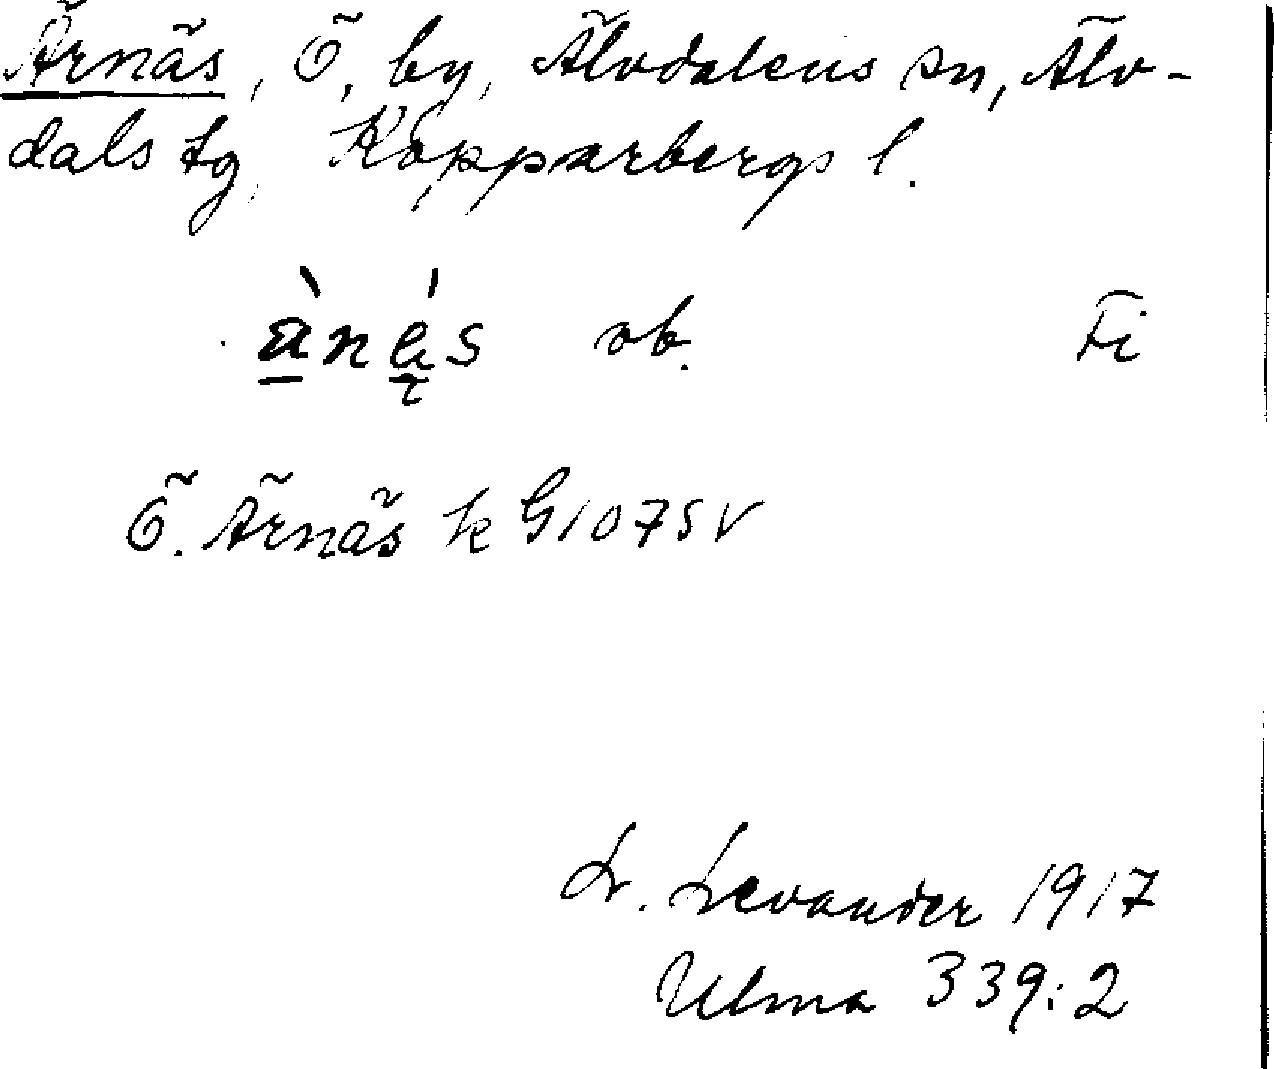 Ärnäs, Ö, by, Älvdalens sn, Älv-
dals tg, Kopparbergs l.
ob. Fi
Ö. Ärnäs k G1075V
L. Levander 1917
Ulma 339:2